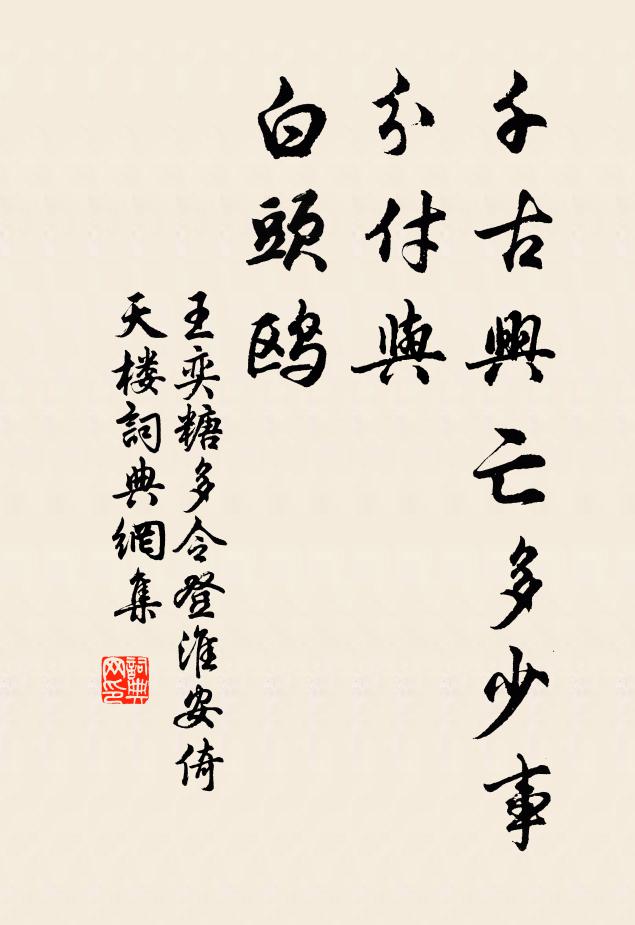 千古興亡多少事
分付與
白頭鷗
王奕糖多令登淮安倚
天楼詞典網集
詞典
网印